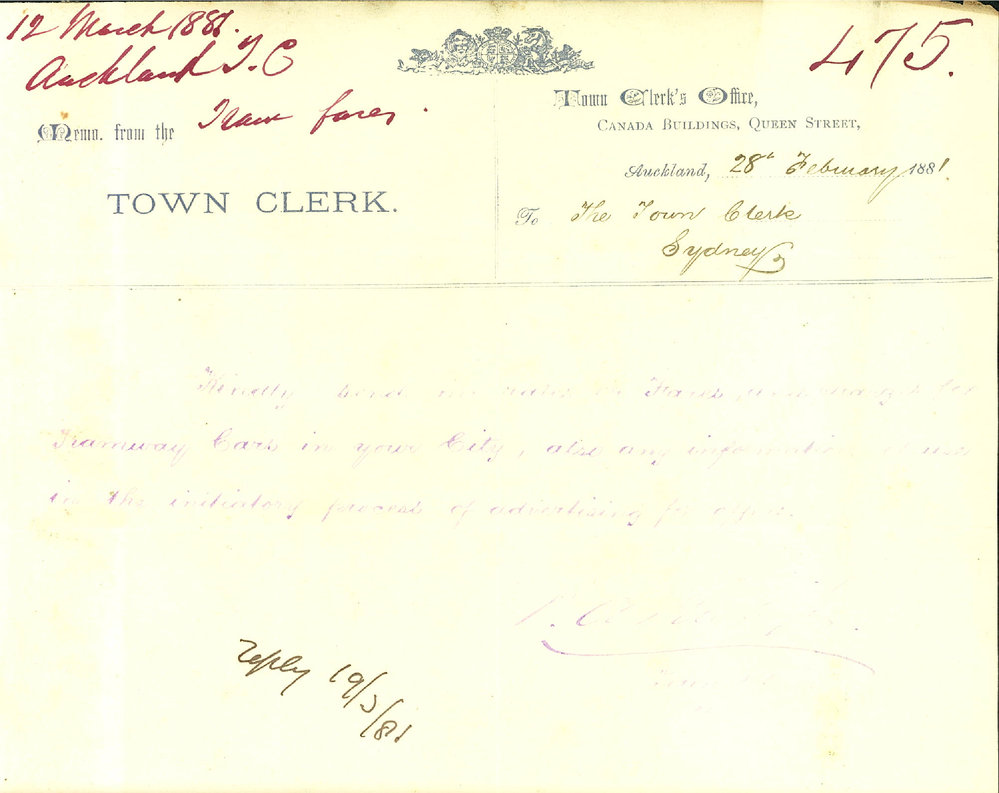 12 March 1881.
Auckland T. C
Tram fares.
475.
Memo. from the
TOWN CLERK.
Town Clerk's Office,
CANADA BUILDINGS, QUEEN STREET,
Auckland, 28th February 1881.
To The Town Clerk
Sydney
Kindly send me rates of Fares, for
Tramway Cars in your City, also any information of use
in the initiatory process of advertising for offers.
reply 19/3/81